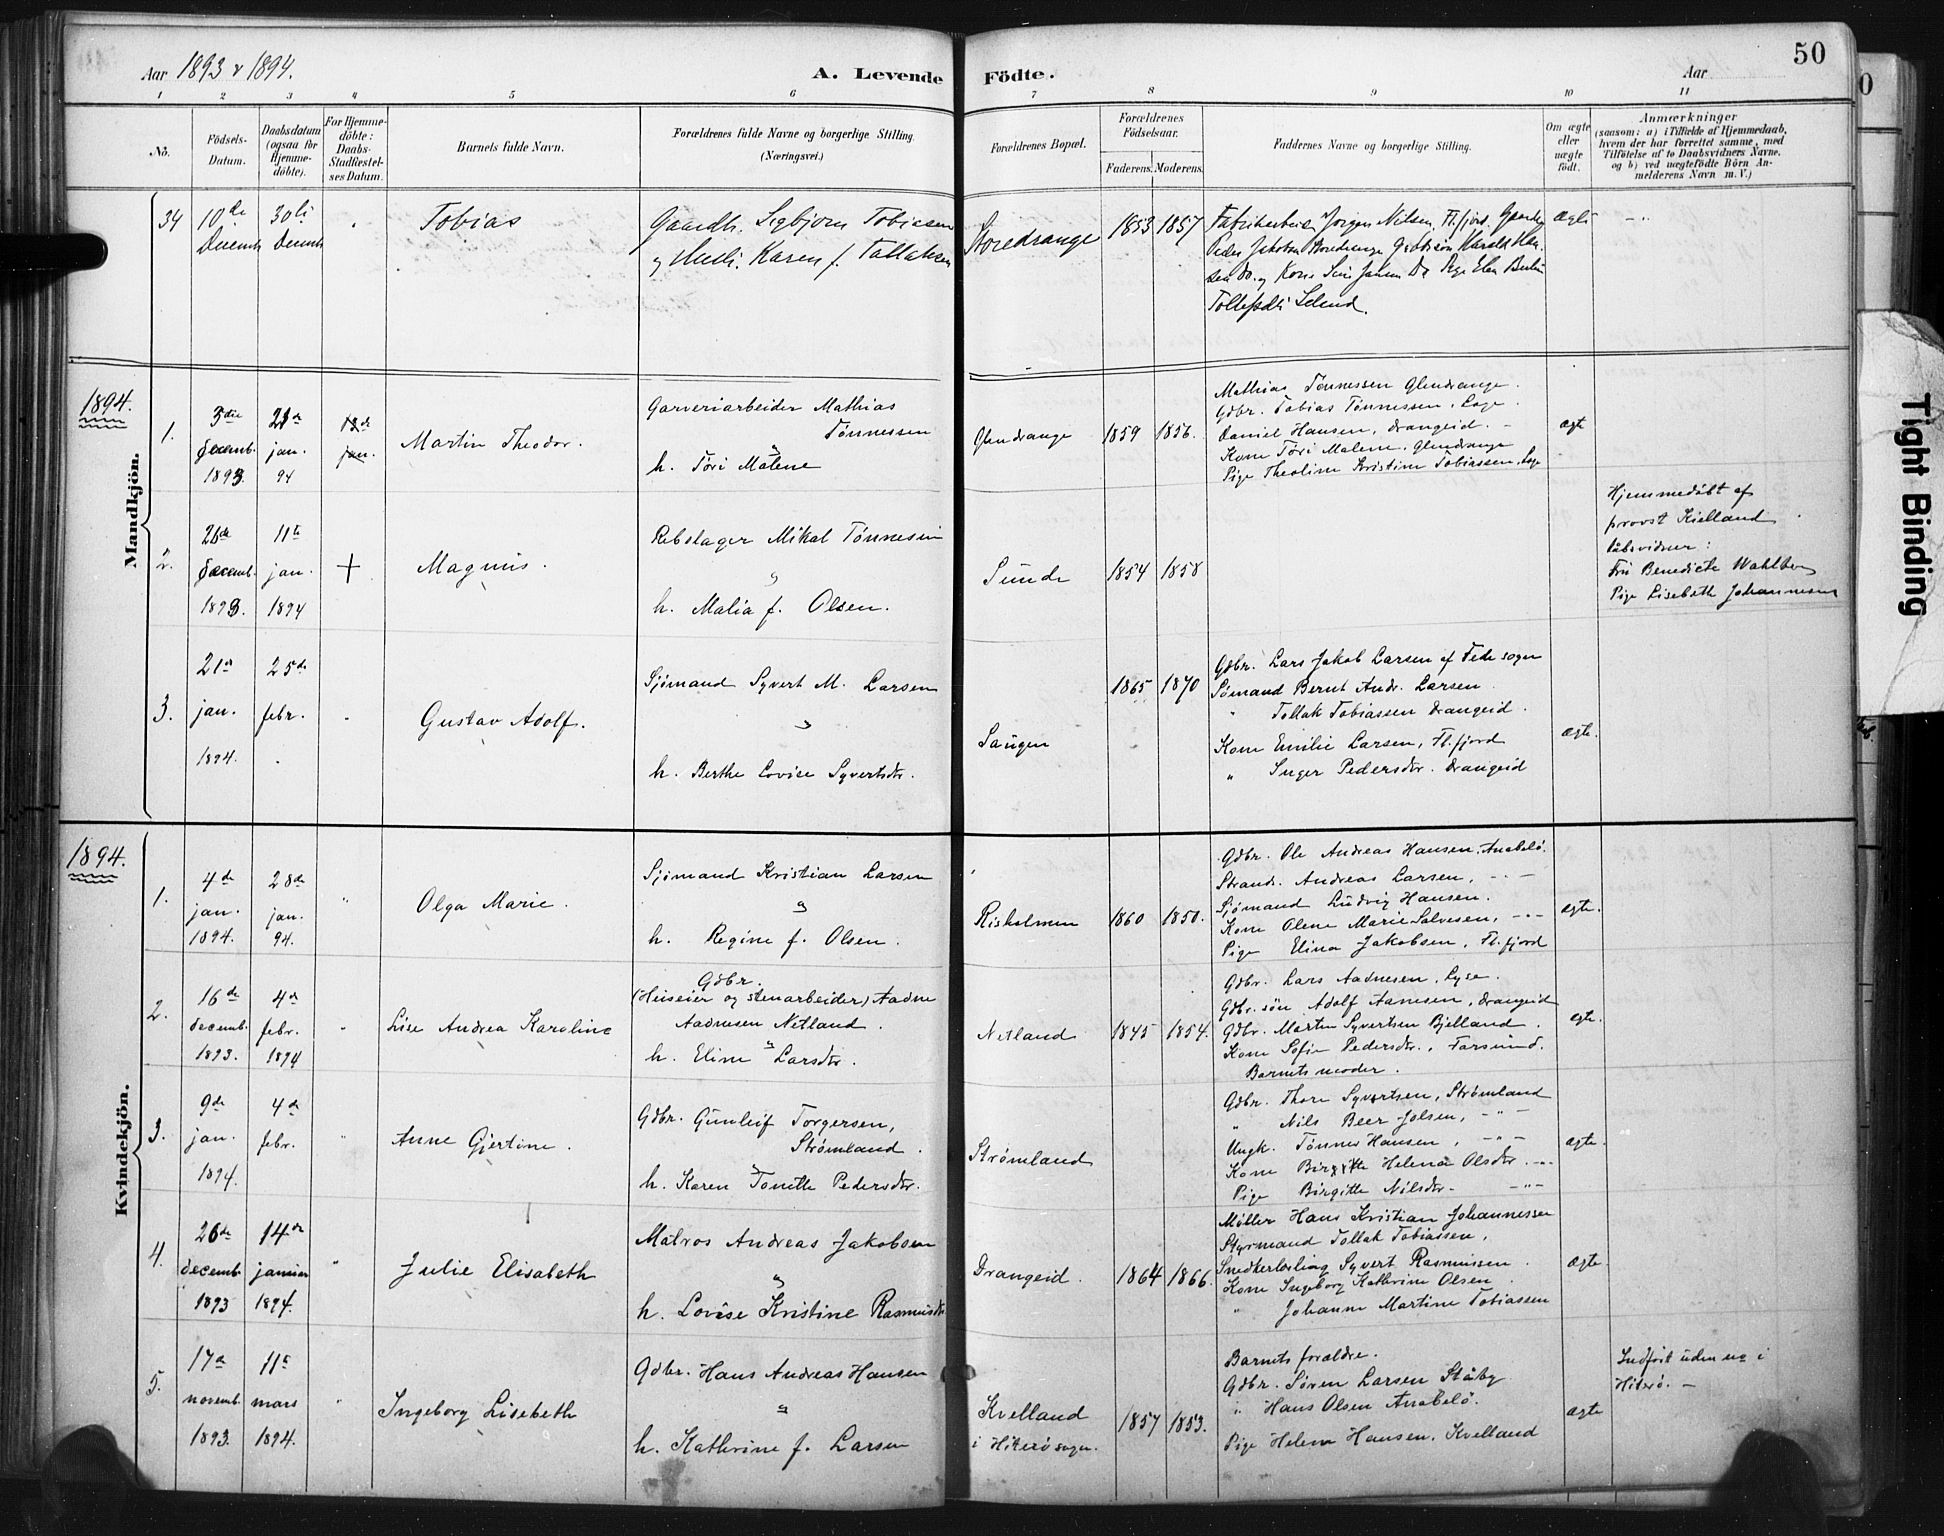 50
Aar 1893 & 1894.
A. Levende Födte.
Aar
1 2 3 4 5 6 7 8 9 10 11
No.
Födsels-
Datum.
Daabsdatum
(ogsaa for
Hjemme-
döbte).
For Hjemme-
döbte:
Daabs-
Stadfæstel-
ses Datum.
Barnets fulde Navn.
Forældrenes fulde Navne og borgerlige Stilling.
(Næringsvei.)
Forældrenes Bopæl.
Forældrenes
Födselsaar.
Faderens. Moderens.
Faddernes Navne og borgerlige Stilling.
Om ægte
eller
uægte
födt.
Anmærkninger
(saasom: a) i Tilfælde af Hjemmedaab,
hvem der har forrettet samme, med
Tilföielse af to Daabsvidners Navne.
og b) ved uægtefödte Börn An-
melderens Navn m. V.)
34
10de
Decemb
30ti
Decemb
Tobias
Gaardb. Sigbjørn Tobiesen
og Hustr. Karen f. Tallaksen
Storedrange
1853 1857
Fabrikarbeider Jørgen Nilsen, Fl.fjord, Gaardbr
Peder Jakobsen Storedrange Gbrsøn Harald Han-
sen Do. og Kone Do Pige Elen
Tollefsdtr
ægte
1894.
Mandkjön.
1.
3die
decemb.
1893.
21de
jan.
94
jan.
Martin Theodor.
Garveriarbeider Mathias
Tønnessen
&
h. Tøri Malene
Glendrange
1859 1856.
Mathias Tønnessen Glendrange.
Gdbr. Tobias Tønnessen, Lage.
Daniel Hansen, Drangeid. -
Kone Tøri Malene, Glendrange
Pige Theoline Kristine Tobiassen, Lage
ægte
2.
26de
decemb.
1893.
11te
jan.
1894
+
Magnus.
Rebslager Mikal Tønnesen
&
h. Malia f. Olsen.
Sunde
1854 1858
Hjemmedøbt af
provst Kielland.
Dåbsvidner:
Fru Benedicte Wahlberg
Pige Lisebeth Johannesen
3.
21de
jan.
1894.
25de
febr.
Gustav Adolf.
Sjømand Syvert M. Larsen
&
h. Berthe Lovise Syvertsdtr.
Saugen
1865 1870
Gdbr. Lars Jakob Larsen af Fede sogn
Sømand Bernt Andr. Larsen
" Tollak Tobiassen Drangeid.
Kone Emilie Larsen, Fl.fjord
" Inger Pedersdtr. Drangeid
ægte.
1894.
Kvindekjön.
1.
4de
jan.
1894.
28de
jan.
94.
"
Olga Marie.
Sjømand Kristian Larsen
&
h. Regine f. Olsen.
Risholmen
1860 1850.
Gdbr. Ole Andreas Hansen. Anabelø.
Strands. Andreas Larsen, - " -
Sjømand Ludvig Hansen.
Kone Olene Marie Salvesen, - " -
Pige Elina Jakobsen, Fl.fjord
ægte.
2.
16de
decemb.
1893.
4de
febr.
1894
"
Lise Andrea Karoline
Gdbr.
(Huseier og stenarbeider) Aadne
Aadnesen Netland.
&
h. Eline Larsdtr.
Netland
1845 1854.
Gdbr. Lars Aadnesen, Lyse.
Gdbr. søn Adolf Aanesen, Drangeid
Gdbr. Martin Syvertsen Bjelland.
Kone Sofie Pedersdtr., Farsund.
Barnets moder.
ægte.
3.
9de
jan.
1894.
4de
febr.
"
Anne Gjertine.
Gdbr. Gunleif Torgersen,
Strømland.
&
h. Karen Tonette Pedersdtr.
Strømland
Gdbr. Thore Syvertsen, Strømland
" Nils Beer Jolsen, - " -
Ungk. Tønnes Hansen, - " -
Kone Birgitte Helena Olsdtr. - " -
Pige Birgitte Nilsdtr. - " -
ægte.
4.
26de
decemb.
1893
14de
januar
1894.
"
Julie Elisabeth
Matros Andreas Jakobsen
&
h. Lovise Kristine Rasmusdtr.
Drangeid.
1864 1866.
Møller Hans Kristian Johannessen
Styrmand Tollak Tobiassen,
Snedkerlærling Syvert Rasmussen.
Kone Ingeborg Kathrine Olsen.
" Johanne Martine Tobiassen
ægte
5.
17de
novemb.
1893.
11te
mars
1894.
"
Ingeborg Lisebeth
Gdbr. Hans Andreas Hansen
&
h. Kathrine f. Larsen
Kvelland
i Hiterø sogn.
1857 1853.
Barnets forældre.
Gdbr. Søren Larsen Ståby
" Hans Olsen Anabelø.
Pige Helene Hansen, Kvelland
ægte
Indført uden no i
Hiterø. -
Tight Binding